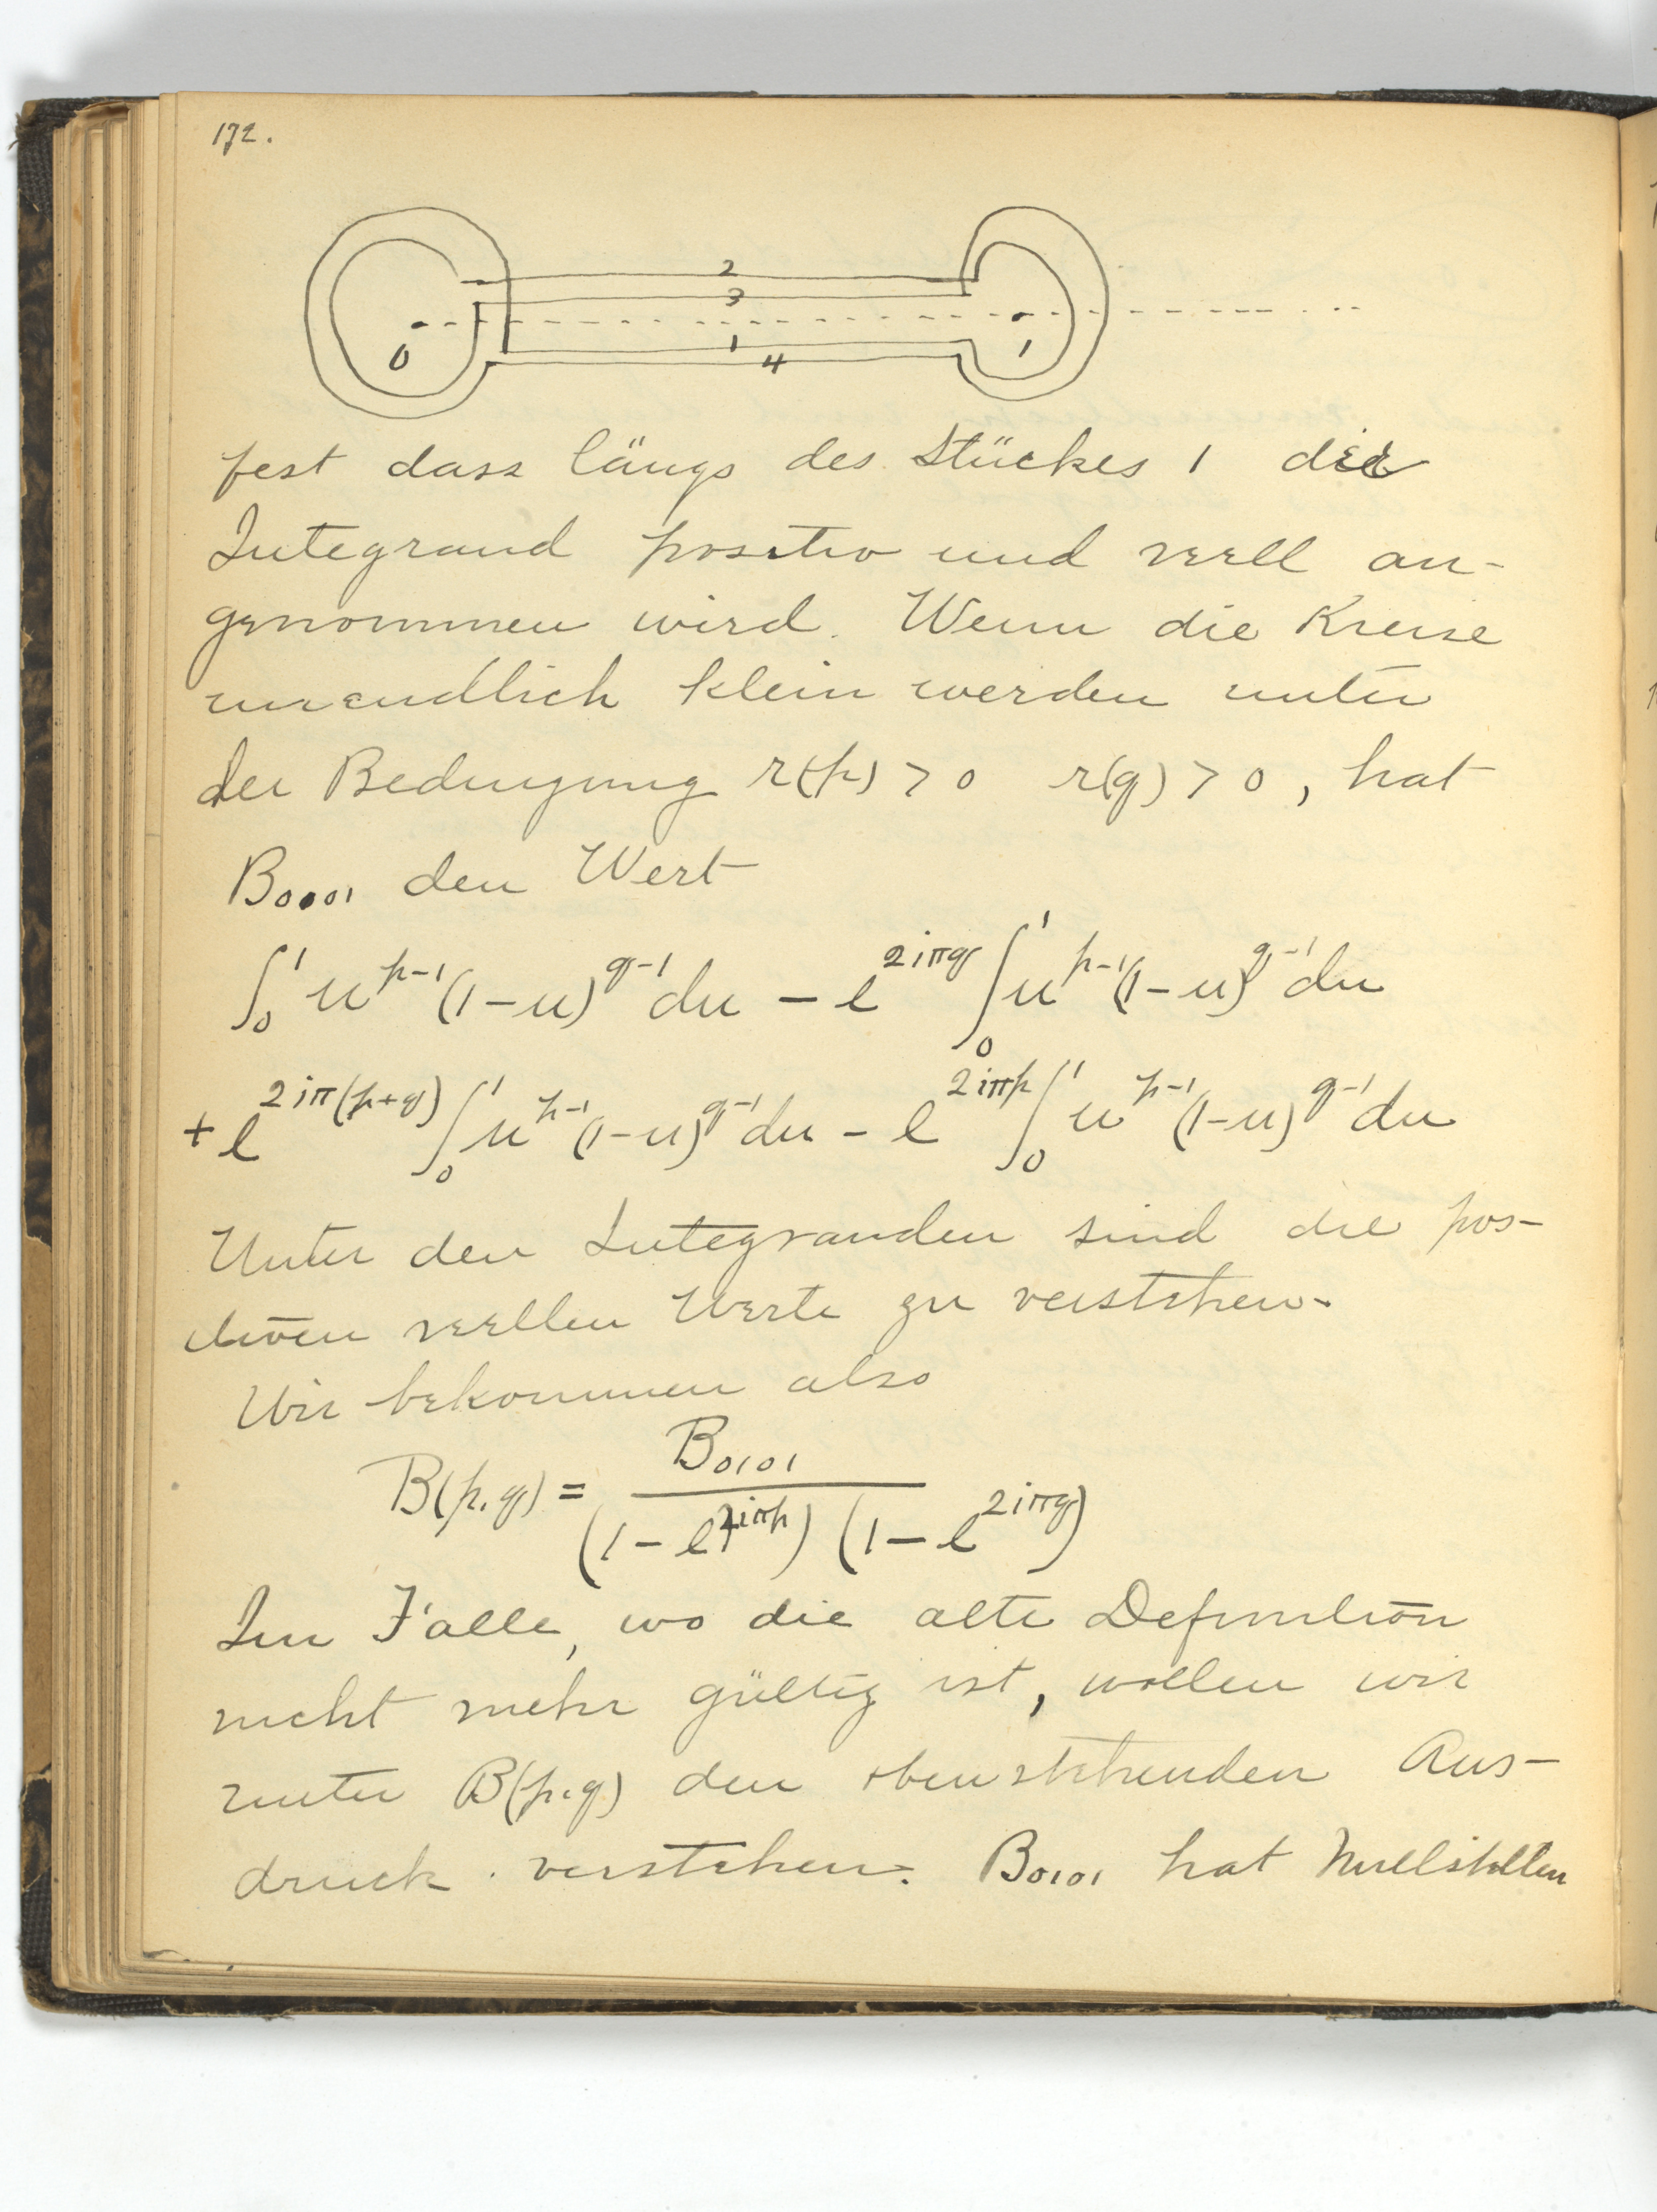 172.
2
3
0 1 1
4
fest dass längs des Stückes 1 die
Integrand positiv und reell an-
genommen wird. Wenn die Kreise
unendlich klein werden unter
der Bedingung r(p) > 0 r(q) > 0, hat
B₀₁₀₁ den Wert
∫₀¹ u^{p-1}(1-u)^{q-1} du - e^{2iπq} ∫₀¹ u^{p-1}(1-u)^{q-1} du
+ e^{2iπ(p+q)} ∫₀¹ u^{p-1}(1-u)^{q-1} du - e^{2iπp} ∫₀¹ u^{p-1}(1-u)^{q-1} du
Unter den Integranden sind die pos-
itiven reellen Werte zu verstehen.
Wir bekommen also
B(p.q) = B₀₁₀₁ / (1 - e^{2iπp}) (1 - e^{2iπq})
Im Falle, wo die alte Definition
nicht mehr gültig ist, wollen wir
unter B(p.q) den obenstehenden Aus-
druck verstehen. B₀₁₀₁ hat Nullstellen